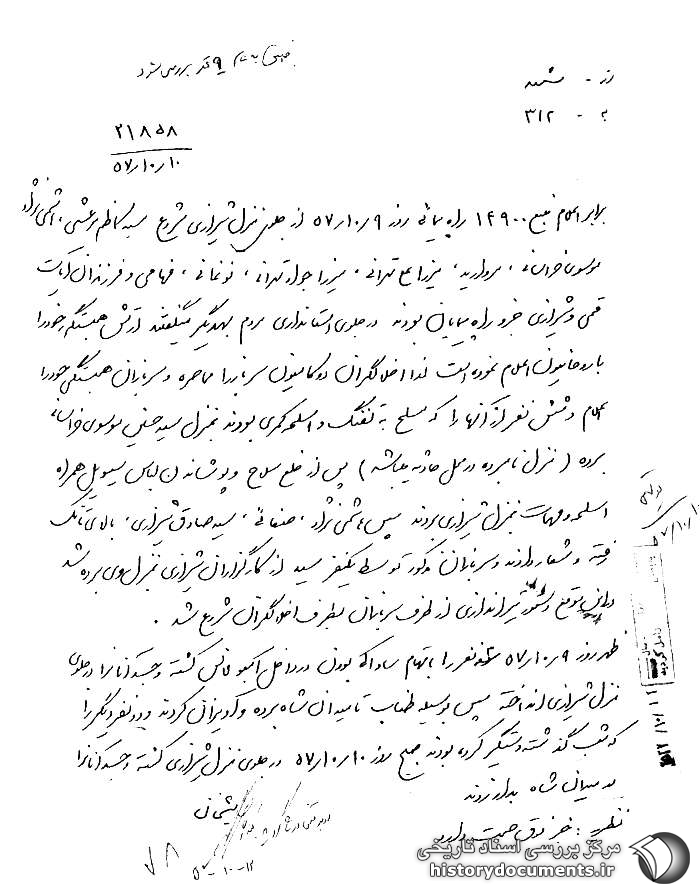 از - مشهد
به - ۳۱۲
۲۱۸۵۸
۵۷/۱۰/۱۰
برابر اعلام منبع ۱۴۹۰۰ راه پیمائی روز ۵۷/۱۰/۹ از جلوی منزل شیرازی شروع سید کاظم مرعشی، هاشمی نژاد
موسوی خراسانی، مروارید، میرزا علی تهرانی، میرزا جواد تهرانی، نوغانی، فهامی و فرزندان آیات
قمی و شیرازی جزو راه پیمایان بودند در جلوی استانداری مردم بهمدیگر میگفتند ارتش همبستگی خود را
با روحانیون اعلام نموده است لذا اخلالگران دو کامیون سرباز را محاصره و سربازان همبستگی خود را
اعلام و شش نفر از آنها را که مسلح به تفنگ و اسلحه کمری بودند بمنزل سید حسن موسوی خراسانی
برده (منزل نامبرده در محل حادثه میباشد) پس از خلع سلاح و پوشاندن لباس سیویل همراه
اسلحه و مهمات بمنزل شیرازی بردند سپس هاشمی نژاد، صنعانی، سید صادق شیرازی، بالای تانک
رفته و شعار دادند و سربازان مذکور توسط یکنفر سید از کارگزاران شیرازی بمنزل وی برده شد
در این موقع تیراندازی از طرف سربازان بطرف اخلالگران شروع شد.
ظهر روز ۵۷/۱۰/۹ نفر را باتهام ساواکی بودن در داخل آمبولانس کشته و جسد آنها را در جلوی
منزل شیرازی انداخته سپس بوسیله طناب تا میدان شاه برده و آویزان کردند و دو نفر دیگر را
که شب گذشته دستگیر کرده بودند صبح روز ۵۷/۱۰/۱۰ در جلوی منزل شیرازی کشته و جسد آنها را
در میدان شاه بدار زدند
نظریه: خبر فوق صحت دارد
شیخان
۷۸
مرکز بررسی اسناد تاریخی
historydocuments.ir